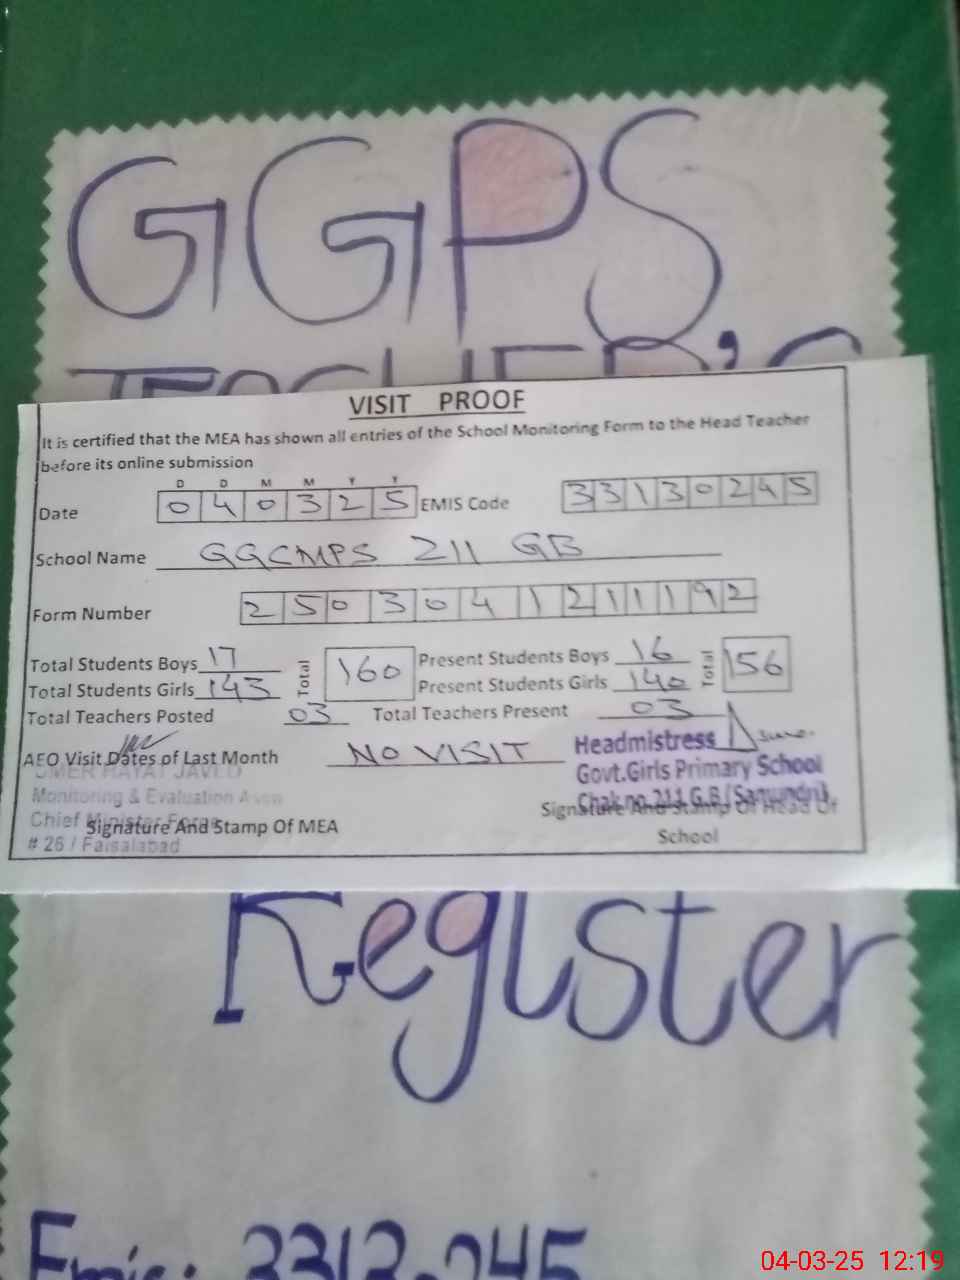 GGPS
TEACHER'S
VISIT PROOF
It is certified that the MEA has shown all entries of the School Monitoring Form to the Head Teacher
before its online submission
D D M M Y Y
Date 0 4 0 3 2 5 EMIS Code 3 3 1 3 0 2 4 5
School Name GGCMPS 211 GB
Form Number 2 5 0 3 0 4 1 2 1 1 1 9 2
Total Students Boys 17 Total 160 Present Students Boys 16 Total 156
Total Students Girls 143 Present Students Girls 140
Total Teachers Posted 03 Total Teachers Present 03
AEO Visit Dates of Last Month NO VISIT
Headmistress
Govt.Girls Primary School
Chak no.211 G.B (Samundri)
UMER HAYAT JAVED
Monitoring & Evaluation Assn
Chief Minister Force
# 26 / Faisalabad
Signature And Stamp Of MEA
Signature And Stamp Of Head Of
School
Register
Emis: 3313 245
04-03-25 12:19